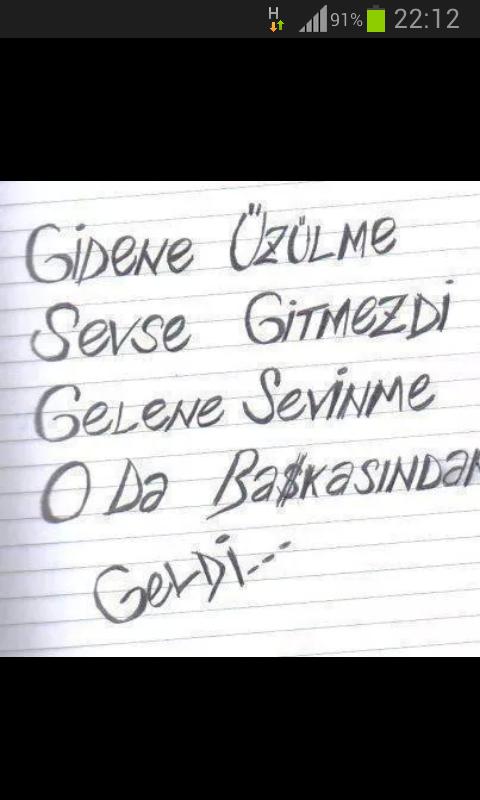 H 91% 22:12
GiDeNe ÜZÜLMe
Sevse GiTMeZDi
GeLeNe SeviNMe
O Da BaşKaSINDaN
GeLDi...